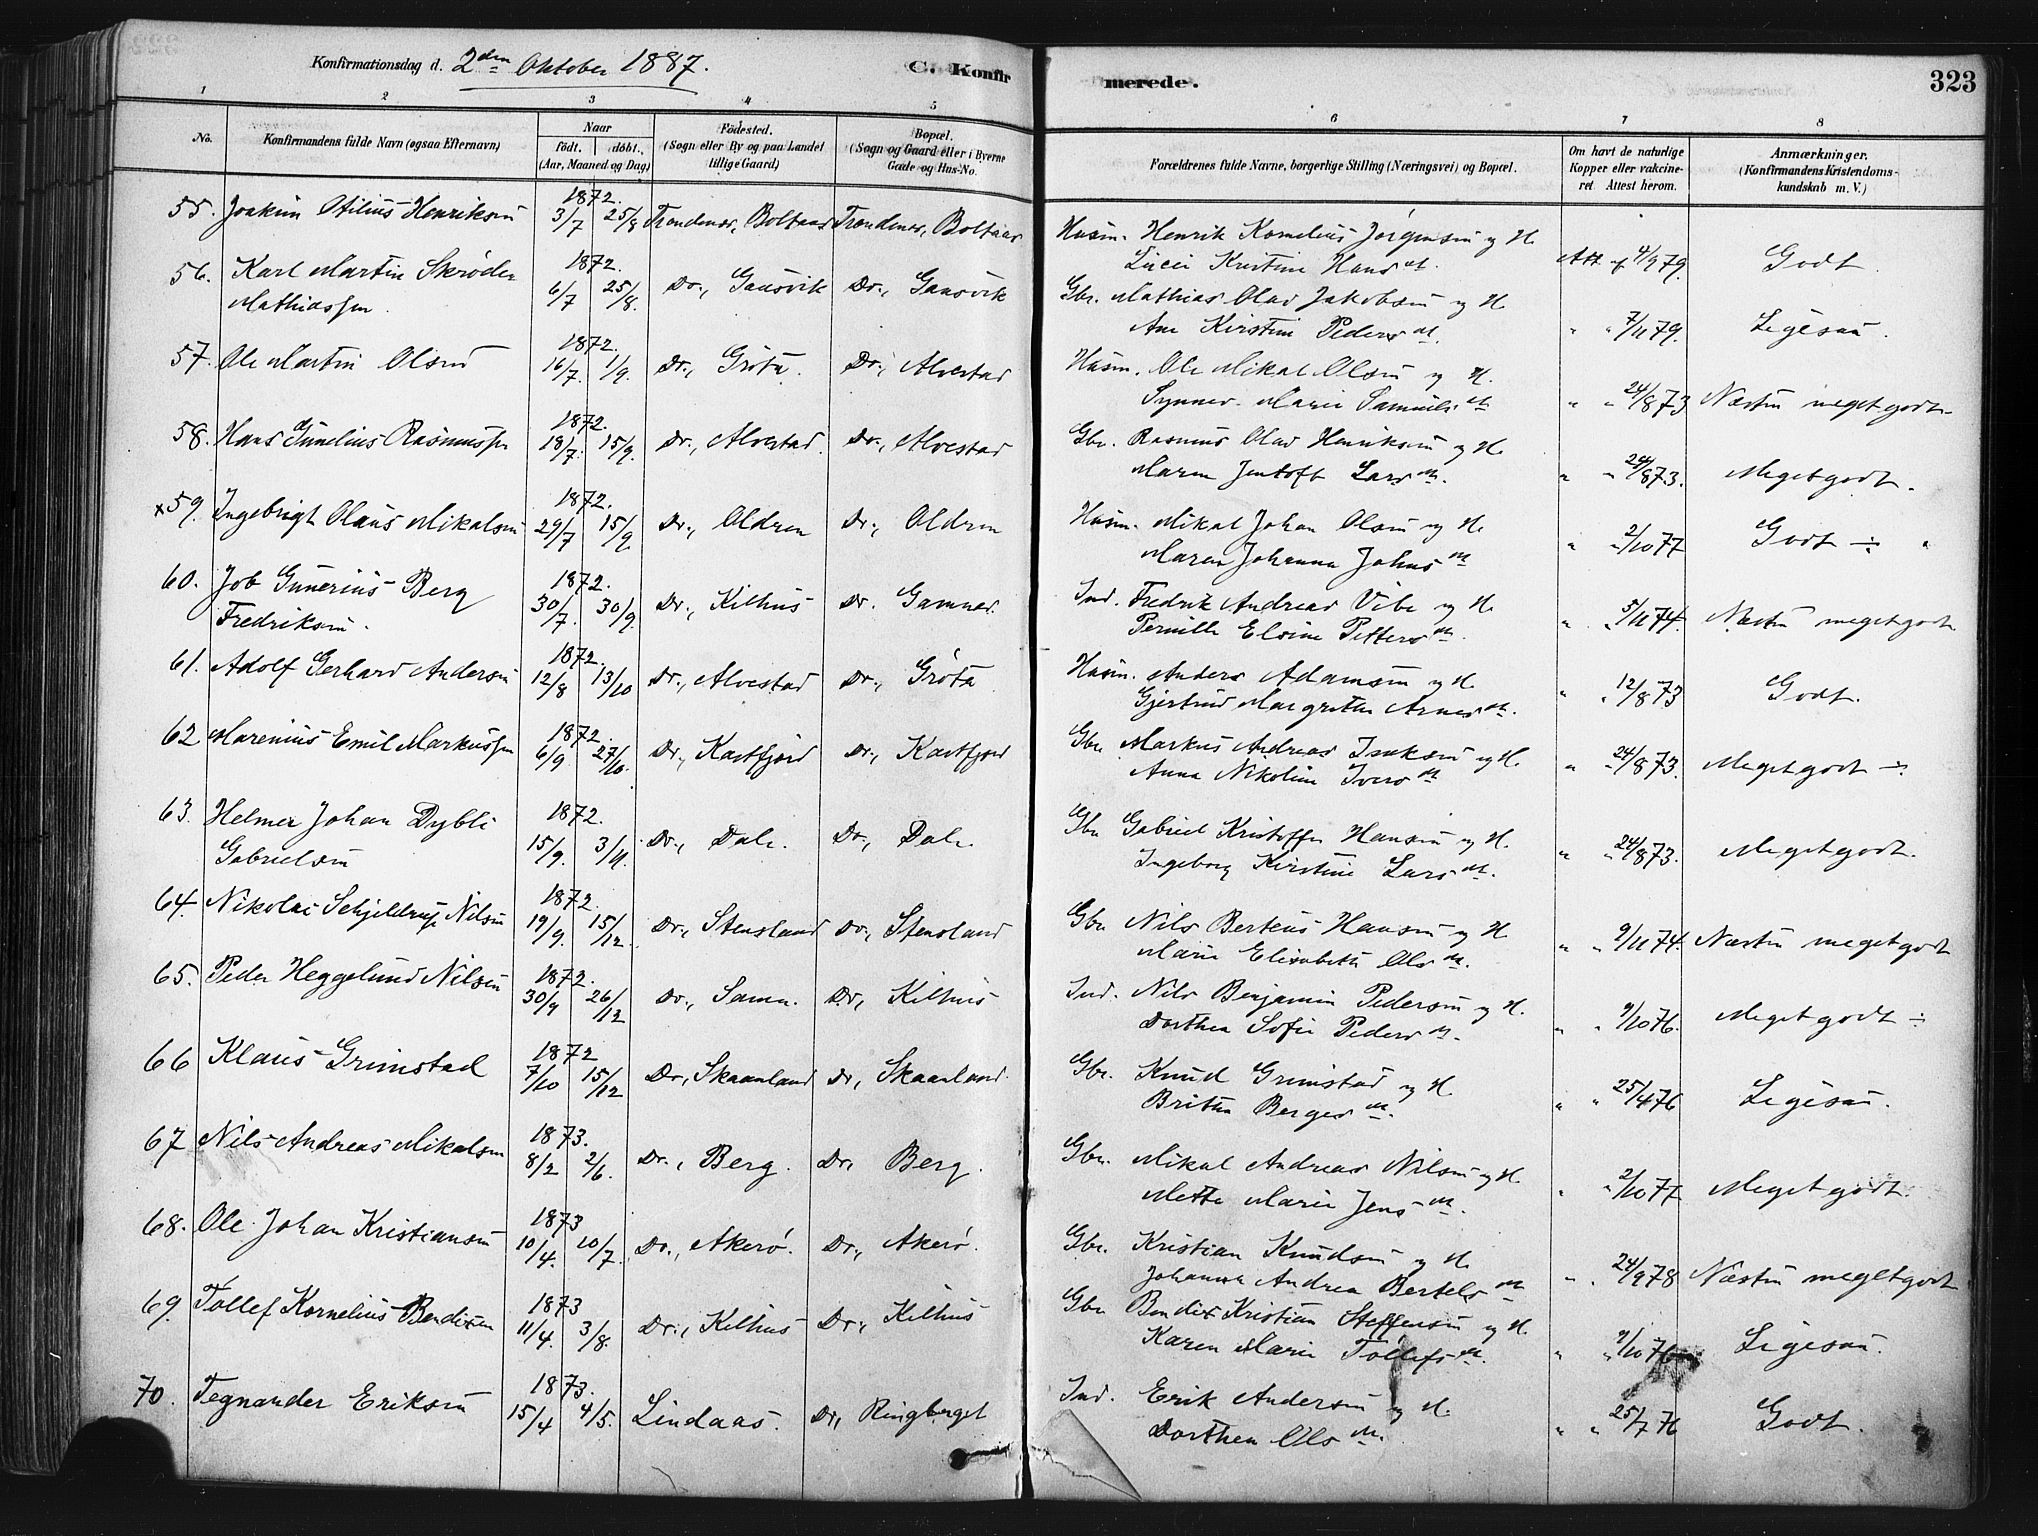 Konfirmationsdag d. 2den Oktober 1887.
C. Konfirmerede.
323
1 2 3 4 5 6 7 8
No.
Konfirmandens fulde Navn (ogsaa Efternavn)
Naar
födt. döbt.
(Aar, Maaned og Dag)
Födested.
(Sogn eller By og paa Landet
tillige Gaard)
Bopæl.
(Sogn og Gaard eller i Byerne
Gade og Hus-No.
Forældrenes fulde Navne, borgerlige Stilling (Næringsvei) og Bopæl.
Om havt de naturlige
Kopper eller vakcine-
ret. Attest herom.
Anmærkninger.
(Konfirmandens Kristendoms-
kundskab m. V.)
55. Joakim Otilius Henriksen 1872. 3/7 25/8 Trondenes, Boltaas Trondenes, Boltaas
Husm. Henrik Kornelius Jørgensen og H.
Lucie Kristine Hans Att. af 4/9 79. Godt.
56. Karl Martin Skrøder 1872.
Mathiassen. 6/7 25/8. Do., Gausvik Do., Gausvik
Gbr. Mathias Olai Jakobsen og H.
Ane Kirstine Peders " " 7/11 79. Ligesaa.
57. Ole Martin Olsen 1872. 16/7. 1/9. Do., Grøta. Do., Alvestad
Husm. Ole Mikal Olsen og H.
Synnev. Marie Samuels " " 24/8 73 Næsten meget godt.
58. Hans Gunelius Rasmussen 1872. 18/7. 15/9. Do., Alvestad. Do., Alvestad
Gbr. Rasmus Olai Henriksen og H.
Maren Jentoft Lars " " 24/8 73. Meget godt.
x 59. Ingebrigt Olaus Mikalsen 1872. 29/7 15/9. Do., Aldren Do., Aldren
Husm. Mikal Johan Olsen og H.
Maren Johanna Johns " " 2/10 77 Godt ÷ "
60. Job Gunerius Berg 1872.
Fredriksen. 30/7. 30/9. Do., Kilhus Do. Gamnes.
Ind. Fredrik Andreas Vibe og H.
Pernille Elsine Petters " " 5/11 74. Næsten meget godt
61. Adolf Gerhard Andersen 1872. 12/8 13/10 Do., Alvestad Do., Grøta
Husm. Anders Adamsen og H.
Gjertrud Margrethe Arnes " " 12/8 73 Godt.
62 Marenius Emil Markussen 1872. 6/9 27/10. Do., Kastfjord Do., Kastfjord
Gbr. Markus Andreas Isaksen og H.
Anna Nikoline Ivers " " 24/8 73. Meget godt ÷
63. Helmer Johan Dybli 1872.
Gabrielsen 15/9. 3/11. Do., Dale. Do., Dale.
Gbr Gabriel Kristoffer Hansen og H.
Ingeborg Kirstine Lars " " 24/8 73. Meget godt.
64. Nikolai Schjeldrup Nilsen 1872. 19/9. 15/12. Do., Stensland Do., Stensland
Gbr Nils Berteus Hansen og H
Marie Elisabeth Ols " " 9/11 74. Næsten meget godt
65. Peder Heggelund Nilsen 1872. 30/9 26/12 Do., Sama. Do., Kilhus
Ind. Nils Benjamin Pedersen og H.
Dorthea Sofie Peders " " 9/10 76. Meget godt ÷
66 Klaus Grimstad 1872 7/10 15/12 Do., Skaanland Do, Skaanland.
Gbr. Knud Grimstad og H.
Britha Berges " " 25/4 76 Ligesaa.
67 Nils Andreas Mikalsen 1873. 8/2 2/6. Do., Berg. Do, Berg.
Gbr. Mikal Andreas Nilsen og H.
Mette Marie Jens " " 2/10 77 Meget godt.
68. Ole Johan Kristiansen 1873 10/4. 10/7. Do., Akerø. Do., Akerø.
Gbr. Kristian Knudsen og H
Johanna Andrea Bertels " " 24/9 78 Næsten meget godt
69. Tollef Kornelius Bendixen 1873 11/4. 3/8. Do., Kilhus Do., Kilhus
Gbr Bendix Kristian Steffensen og H.
Karen Marie Tollefs " " 9/10 76 Ligesaa.
70. Tegnander Eriksen 1873. 15/4 4/5. Lindaas. Do, Ringberget
Ind. Erik Andersen og H.
Dorthea Ols " " 25/7 76 Godt.